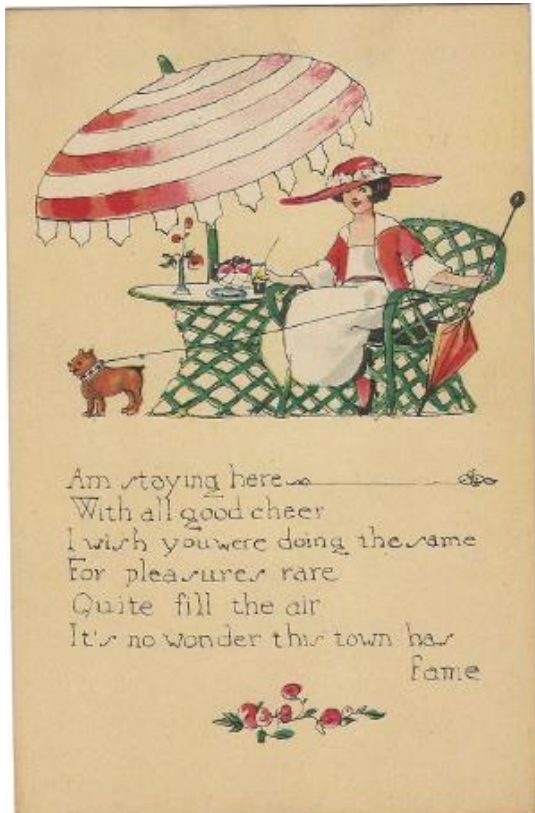 Am staying here
With all good cheer
I wish you were doing the same
For pleasures rare
Quite fill the air
It's no wonder this town has
Fame